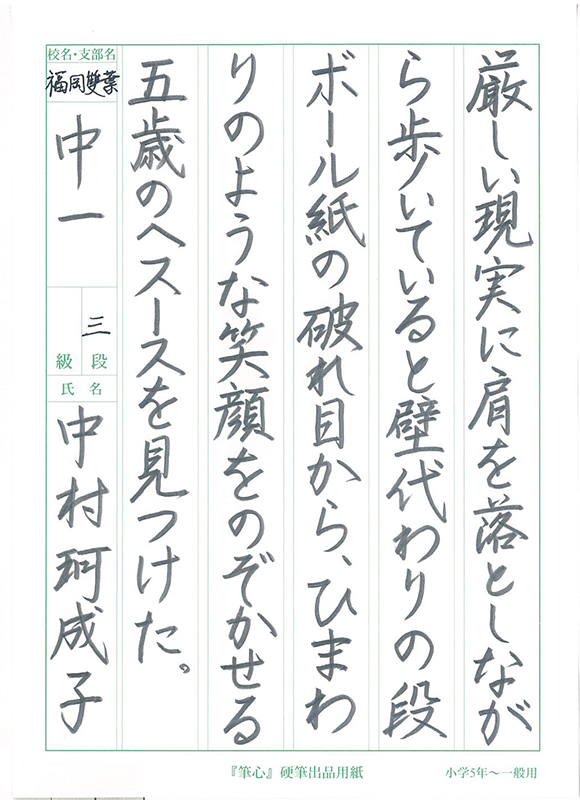 厳しい現実に肩を落としなが
ら歩いていると壁代わりの段
ボール紙の破れ目から、ひまわ
りのような笑顔をのぞかせる
五歳のヘスースを見つけた。
校名・支部名
福岡雙葉
中一
三
級 段
氏名
中村珂成子
『筆心』硬筆出品用紙
小学5年～一般用